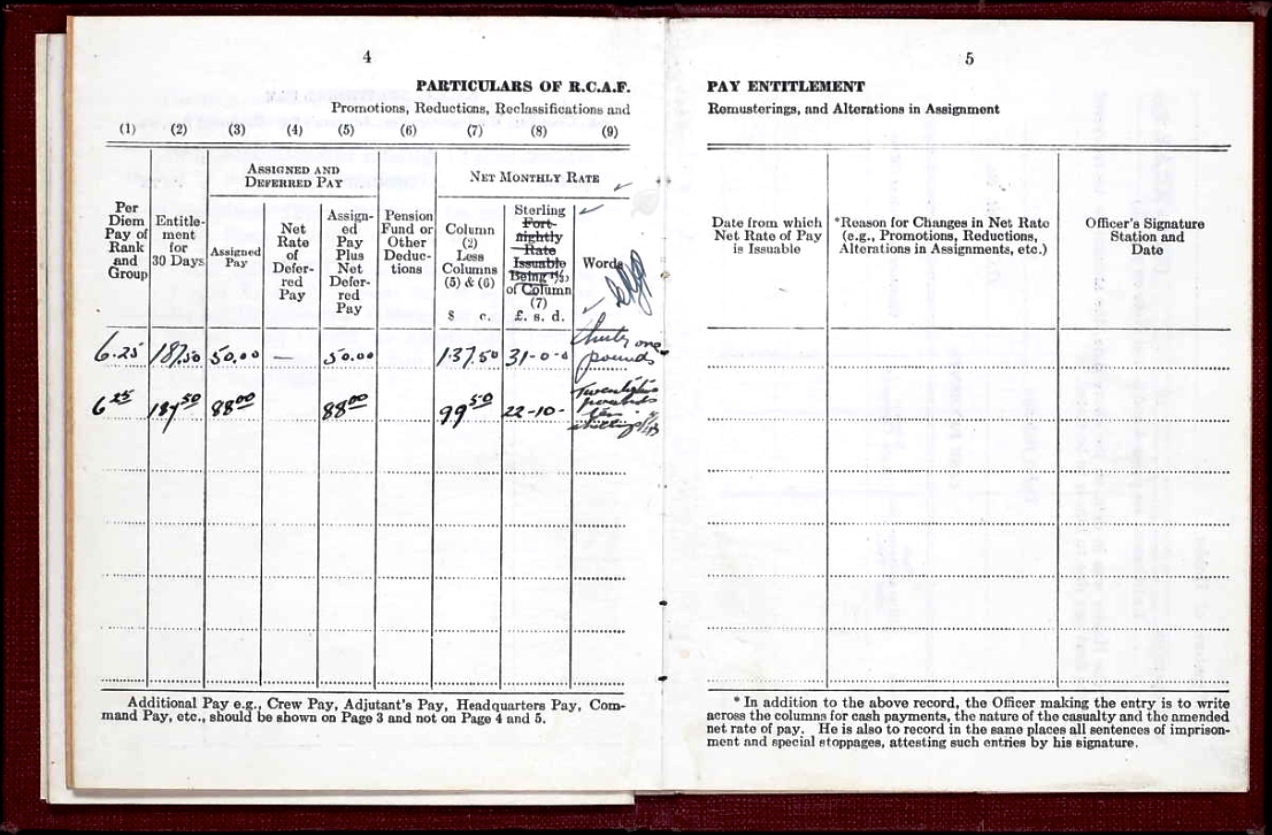 4
PARTICULARS OF R.C.A.F.
Promotions, Reductions, Reclassifications and
(1) (2) (3) (4) (5) (6) (7) (8) (9)
ASSIGNED AND
DEFERRED PAY
NET MONTHLY RATE
Per
Diem
Pay of
Rank
and
Group
Entitle-
ment
for
30 Days
Assigned
Pay
Net
Rate
of
Defer-
red
Pay
Assign-
ed
Pay
Plus
Net
Defer-
red
Pay
Pension
Fund or
Other
Deduc-
tions
Column
(2)
Less
Columns
(5) & (6)
$ c.
Sterling
Fort-
nightly
Rate
Issuable
Being ½,
of Column
(7)
£. s. d.
Words
6.25 187.50 50.00 — 50.00 137.50 31-0-0 thirty one
pounds
6 25 187 50 88 00 88 00 99 50 22-10- Twenty two
pounds
ten
shillings
Additional Pay e.g., Crew Pay, Adjutant's Pay, Headquarters Pay, Com-
mand Pay, etc., should be shown on Page 3 and not on Page 4 and 5.
5
PAY ENTITLEMENT
Remusterings, and Alterations in Assignment
Date from which
Net Rate of Pay
is Issuable
*Reason for Changes in Net Rate
(e.g., Promotions, Reductions,
Alterations in Assignments, etc.)
Officer's Signature
Station and
Date
* In addition to the above record, the Officer making the entry is to write
across the columns for cash payments, the nature of the casualty and the amended
net rate of pay. He is also to record in the same places all sentences of imprison-
ment and special stoppages, attesting such entries by his signature.